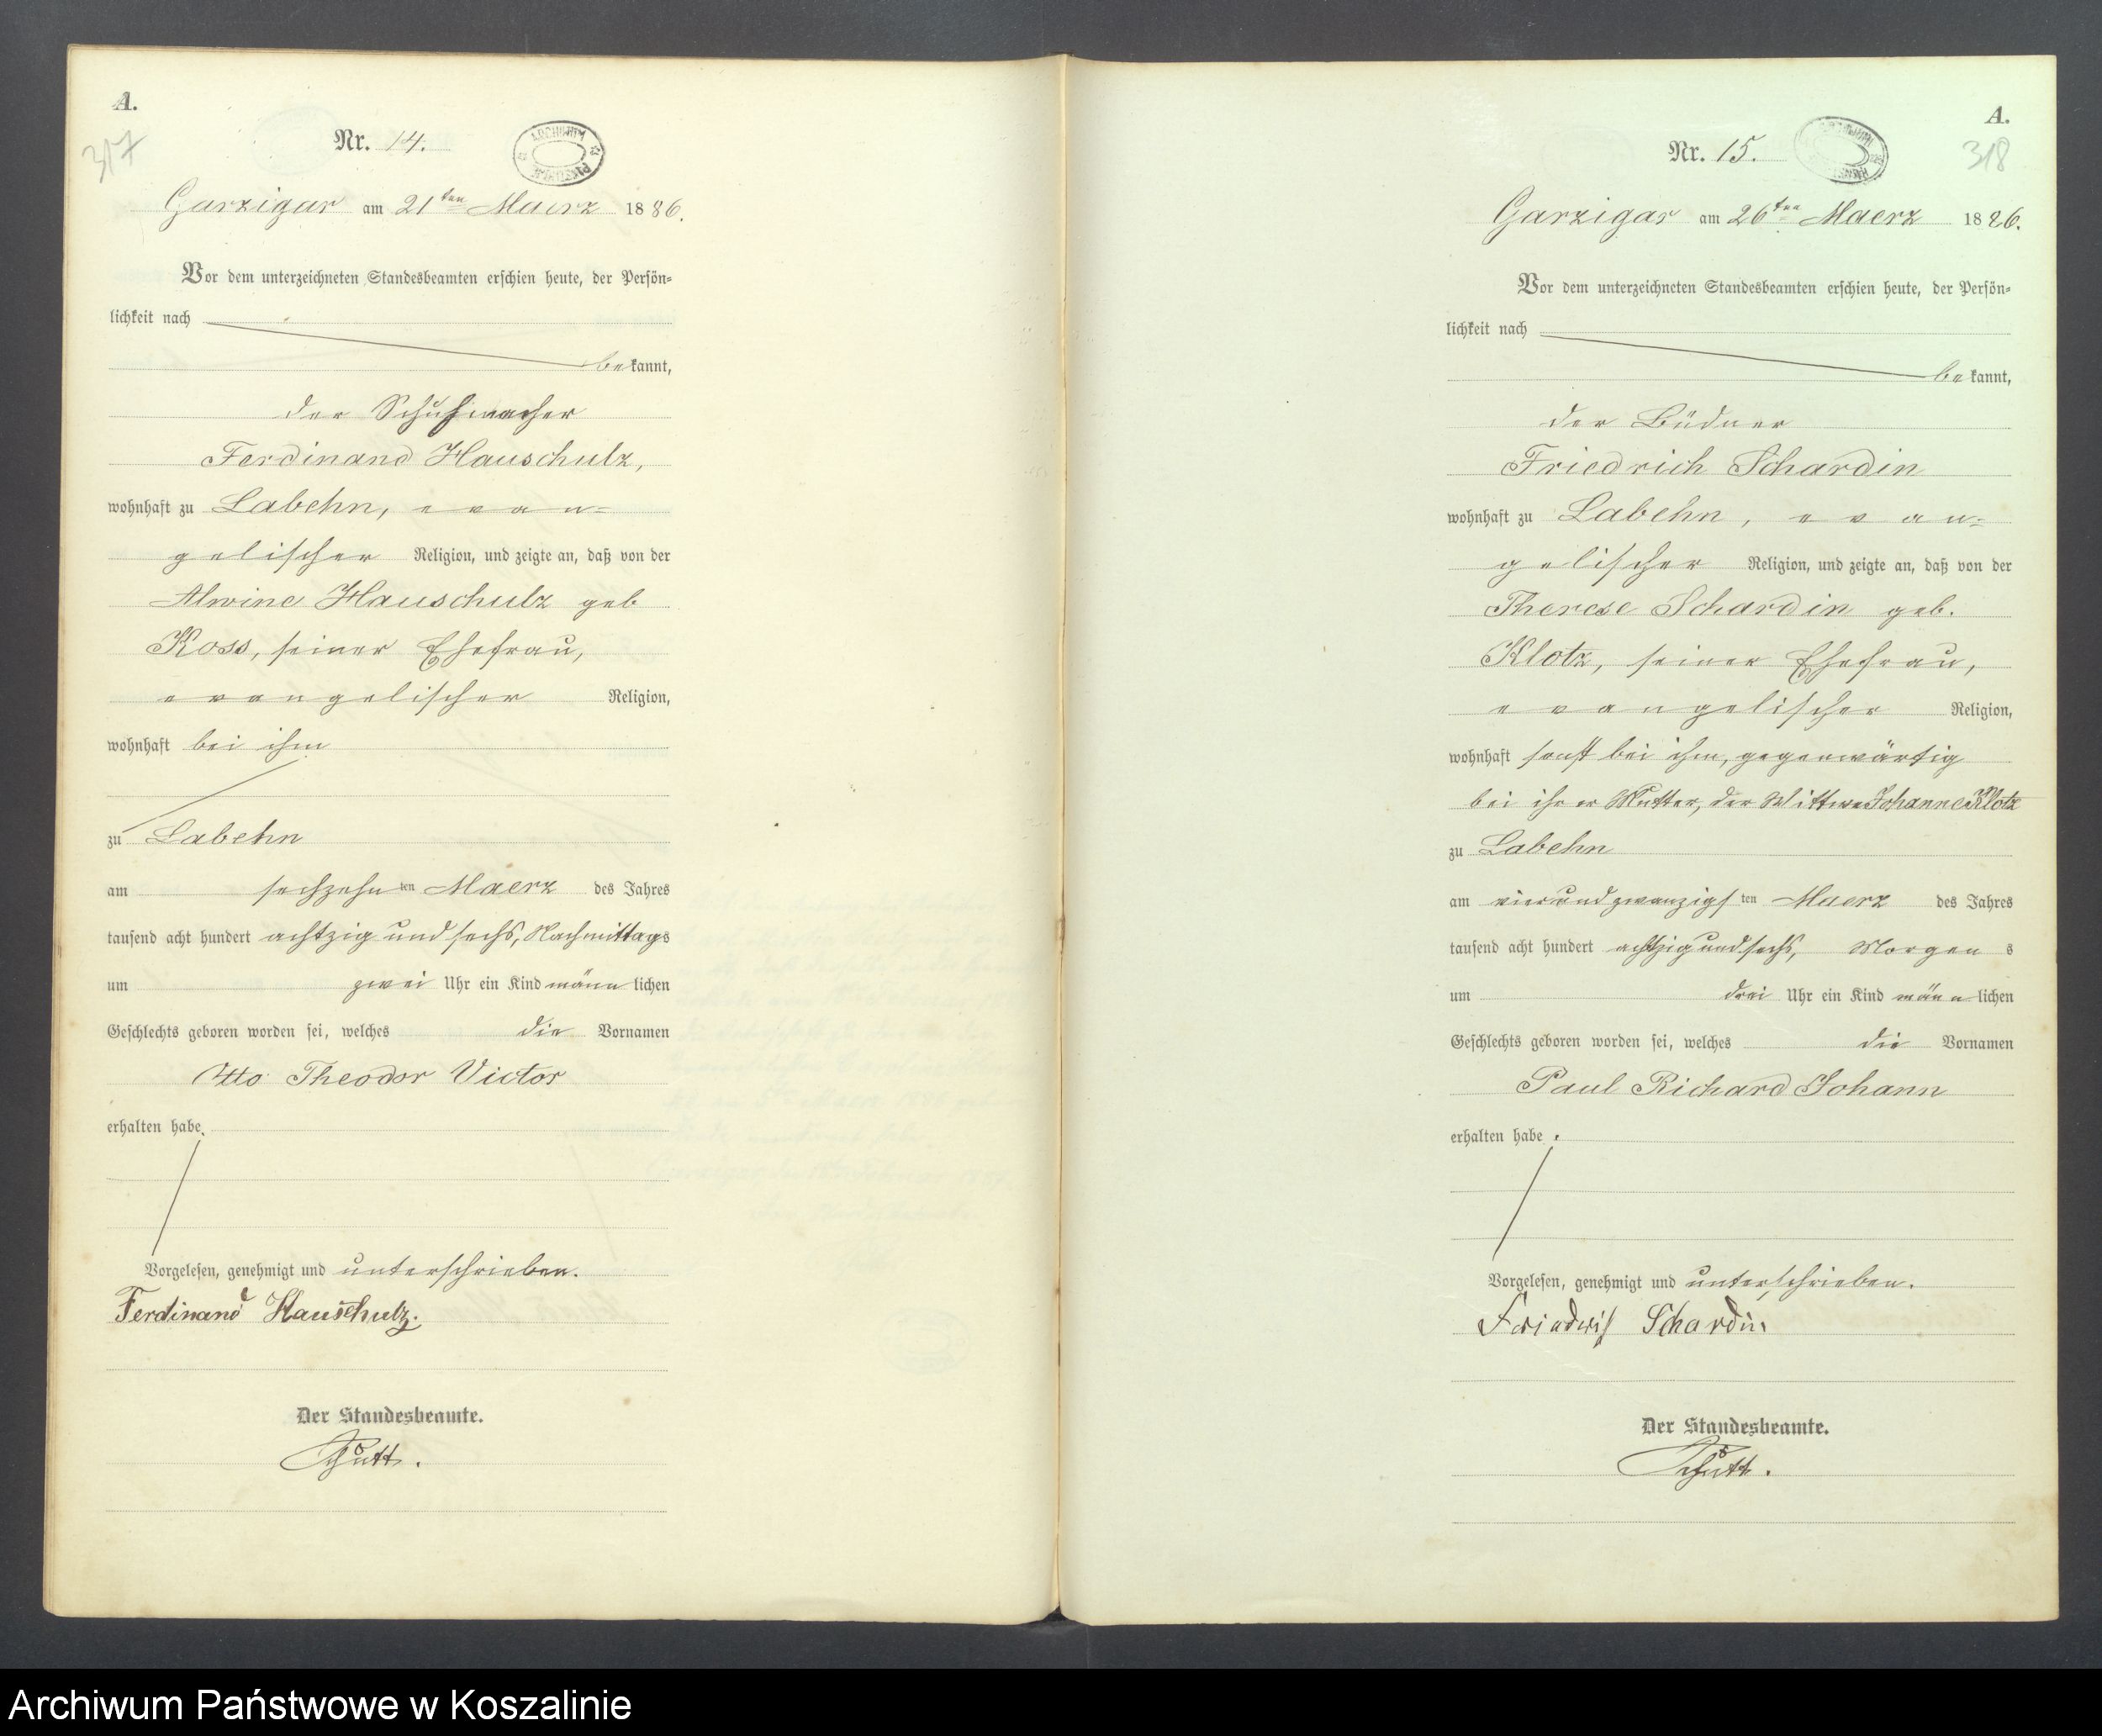 A.
317
Nr. 14.
Garzigar am 21ten Maerz 1886.
Vor dem unterzeichneten Standesbeamten erschien heute, der Persön-
lichkeit nach
bekannt,
der Schuhmacher
Ferdinand Hauschulz,
wohnhaft zu Labehn, evan-
gelischer Religion, und zeigte an, daß von der
Alwine Hauschulz geb
Koss, seiner Ehefrau,
evangelischer Religion,
wohnhaft bei ihm
zu Labehn
am sechzehnten Maerz des Jahres
tausend acht hundert achtzig und sechs, Nachmittags
um zwei Uhr ein Kind männlichen
Geschlechts geboren worden sei, welches die Vornamen
Otto Theodor Victor
erhalten habe.
Vorgelesen, genehmigt und unterschrieben.
Ferdinand Hauschulz.
Der Standesbeamte.
A.
318
Nr. 15.
Garzigar am 26ten Maerz 1886.
Vor dem unterzeichneten Standesbeamten erschien heute, der Persön-
lichkeit nach
bekannt,
der Büdner
Friedrich Schardin
wohnhaft zu Labehn, evan-
gelischer Religion, und zeigte an, daß von der
Therese Schardin geb.
Klotz, seiner Ehefrau,
evangelischer Religion,
wohnhaft sonst bei ihm, gegenwärtig
bei ihrer Mutter, der Wittwe Johanne Klotz
zu Labehn
am vierundzwanzigsten Maerz des Jahres
tausend acht hundert achtzig und sechs, Morgens
um drei Uhr ein Kind männlichen
Geschlechts geboren worden sei, welches die Vornamen
Paul Richard Johann
erhalten habe.
Vorgelesen, genehmigt und unterschrieben.
Friedrich Schardin
Der Standesbeamte.
Archiwum Państwowe w Koszalinie